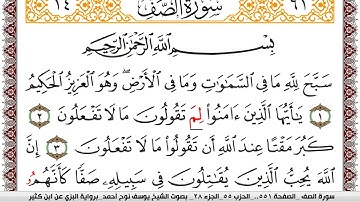 ١٤ سُورَةُ الصَّفِّ ٦١
بِسْمِ اللَّهِ الرَّحْمَٰنِ الرَّحِيمِ
سَبَّحَ لِلَّهِ مَا فِي السَّمَٰوَٰتِ وَمَا فِي الْأَرْضِ ۖ وَهُوَ الْعَزِيزُ الْحَكِيمُ
١ يَٰأَيُّهَا الَّذِينَ ءَامَنُوا لِمَ تَقُولُونَ مَا لَا تَفْعَلُونَ ٢
كَبُرَ مَقْتًا عِندَ اللَّهِ أَن تَقُولُوا مَا لَا تَفْعَلُونَ ٣ إِنَّ
اللَّهَ يُحِبُّ الَّذِينَ يُقَٰتِلُونَ فِي سَبِيلِهِۦ صَفًّا كَأَنَّهُمُۥ
سورة الصف الصفحة ٥٥١_ الحزب ٥٥_الجزء ٢٨_ بصوت الشيخ يوسف نوح احمد برواية البزي عن ابن كثير